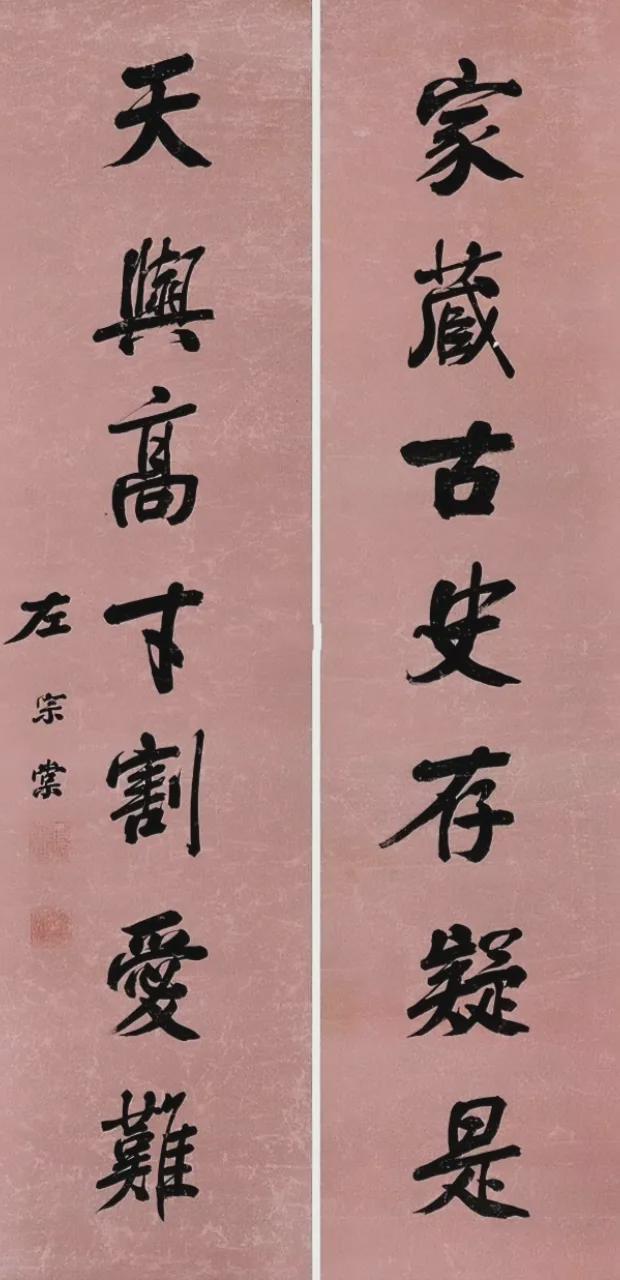 家藏古史存疑是
天與高才割愛難
左宗棠